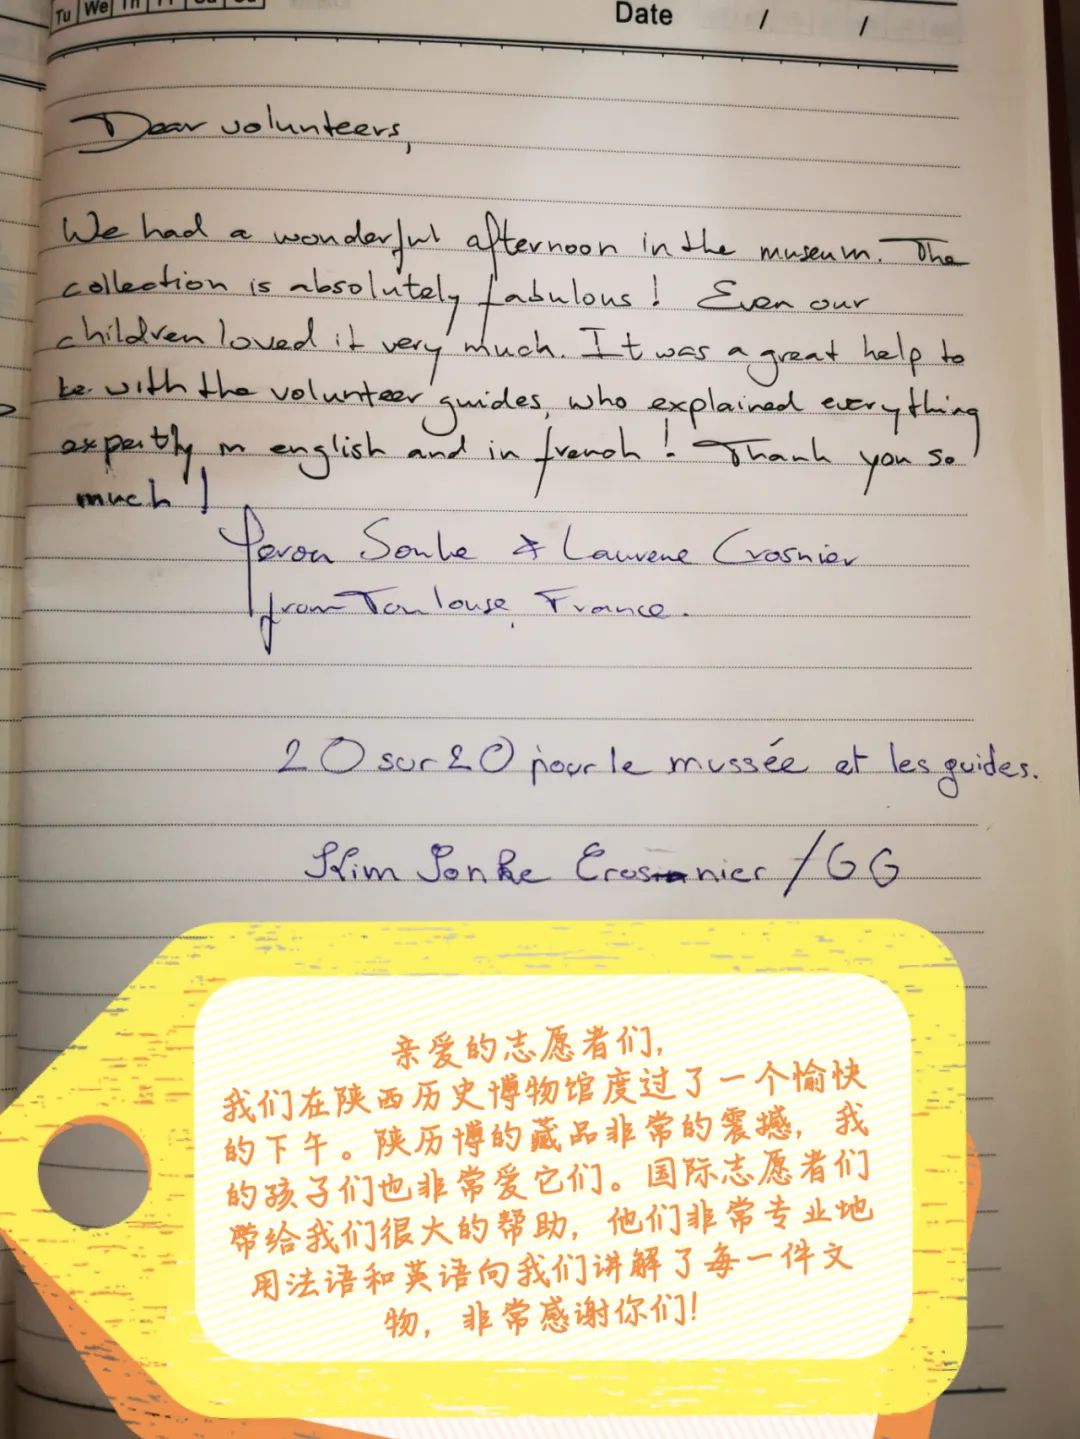 Tu We Th Fr Sa Su
Date / /
Dear volunteers,
We had a wonderful afternoon in the museum. The
collection is absolutely fabulous! Even our
children loved it very much. It was a great help to
be with the volunteer guides, who explained everything
expertly in english and in french! Thank you so
much!
Sonke & Laurene Crosnier
from Toulouse, France.
20 sur 20 pour le mussée et les guides.
Kim Sonke Crosnier / GG
亲爱的志愿者们，
我们在陕西历史博物馆度过了一个愉快
的下午。陕历博的藏品非常的震撼，我
的孩子们也非常爱它们。国际志愿者们
带给我们很大的帮助，他们非常专业地
用法语和英语向我们讲解了每一件文
物，非常感谢你们！